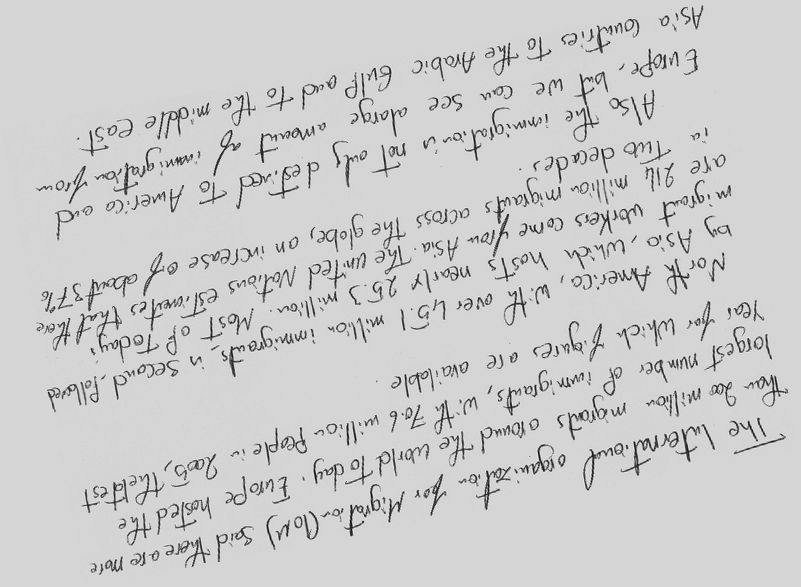 The International organization for Migration (IOM) said there are more
than 200 million migrants around the world today. Europe hosted the
largest number of immigrants, with 70.6 million People in 2005, the latest
Year for which figures are available.
North America, with over 45.1 million immigrants, is second, followed
by Asia, which hosts nearly 25.3 million. Most of Today's
migrant workers come from Asia. The united Nations estimates that there
are 214 million migrants across the globe, an increase of about 37%
in Two decades.
Also the immigration is not only destined To America and
Europe, but we can see alarge amount of immigration from
Asia Countries to the Arabic Gulf and to the middle East.